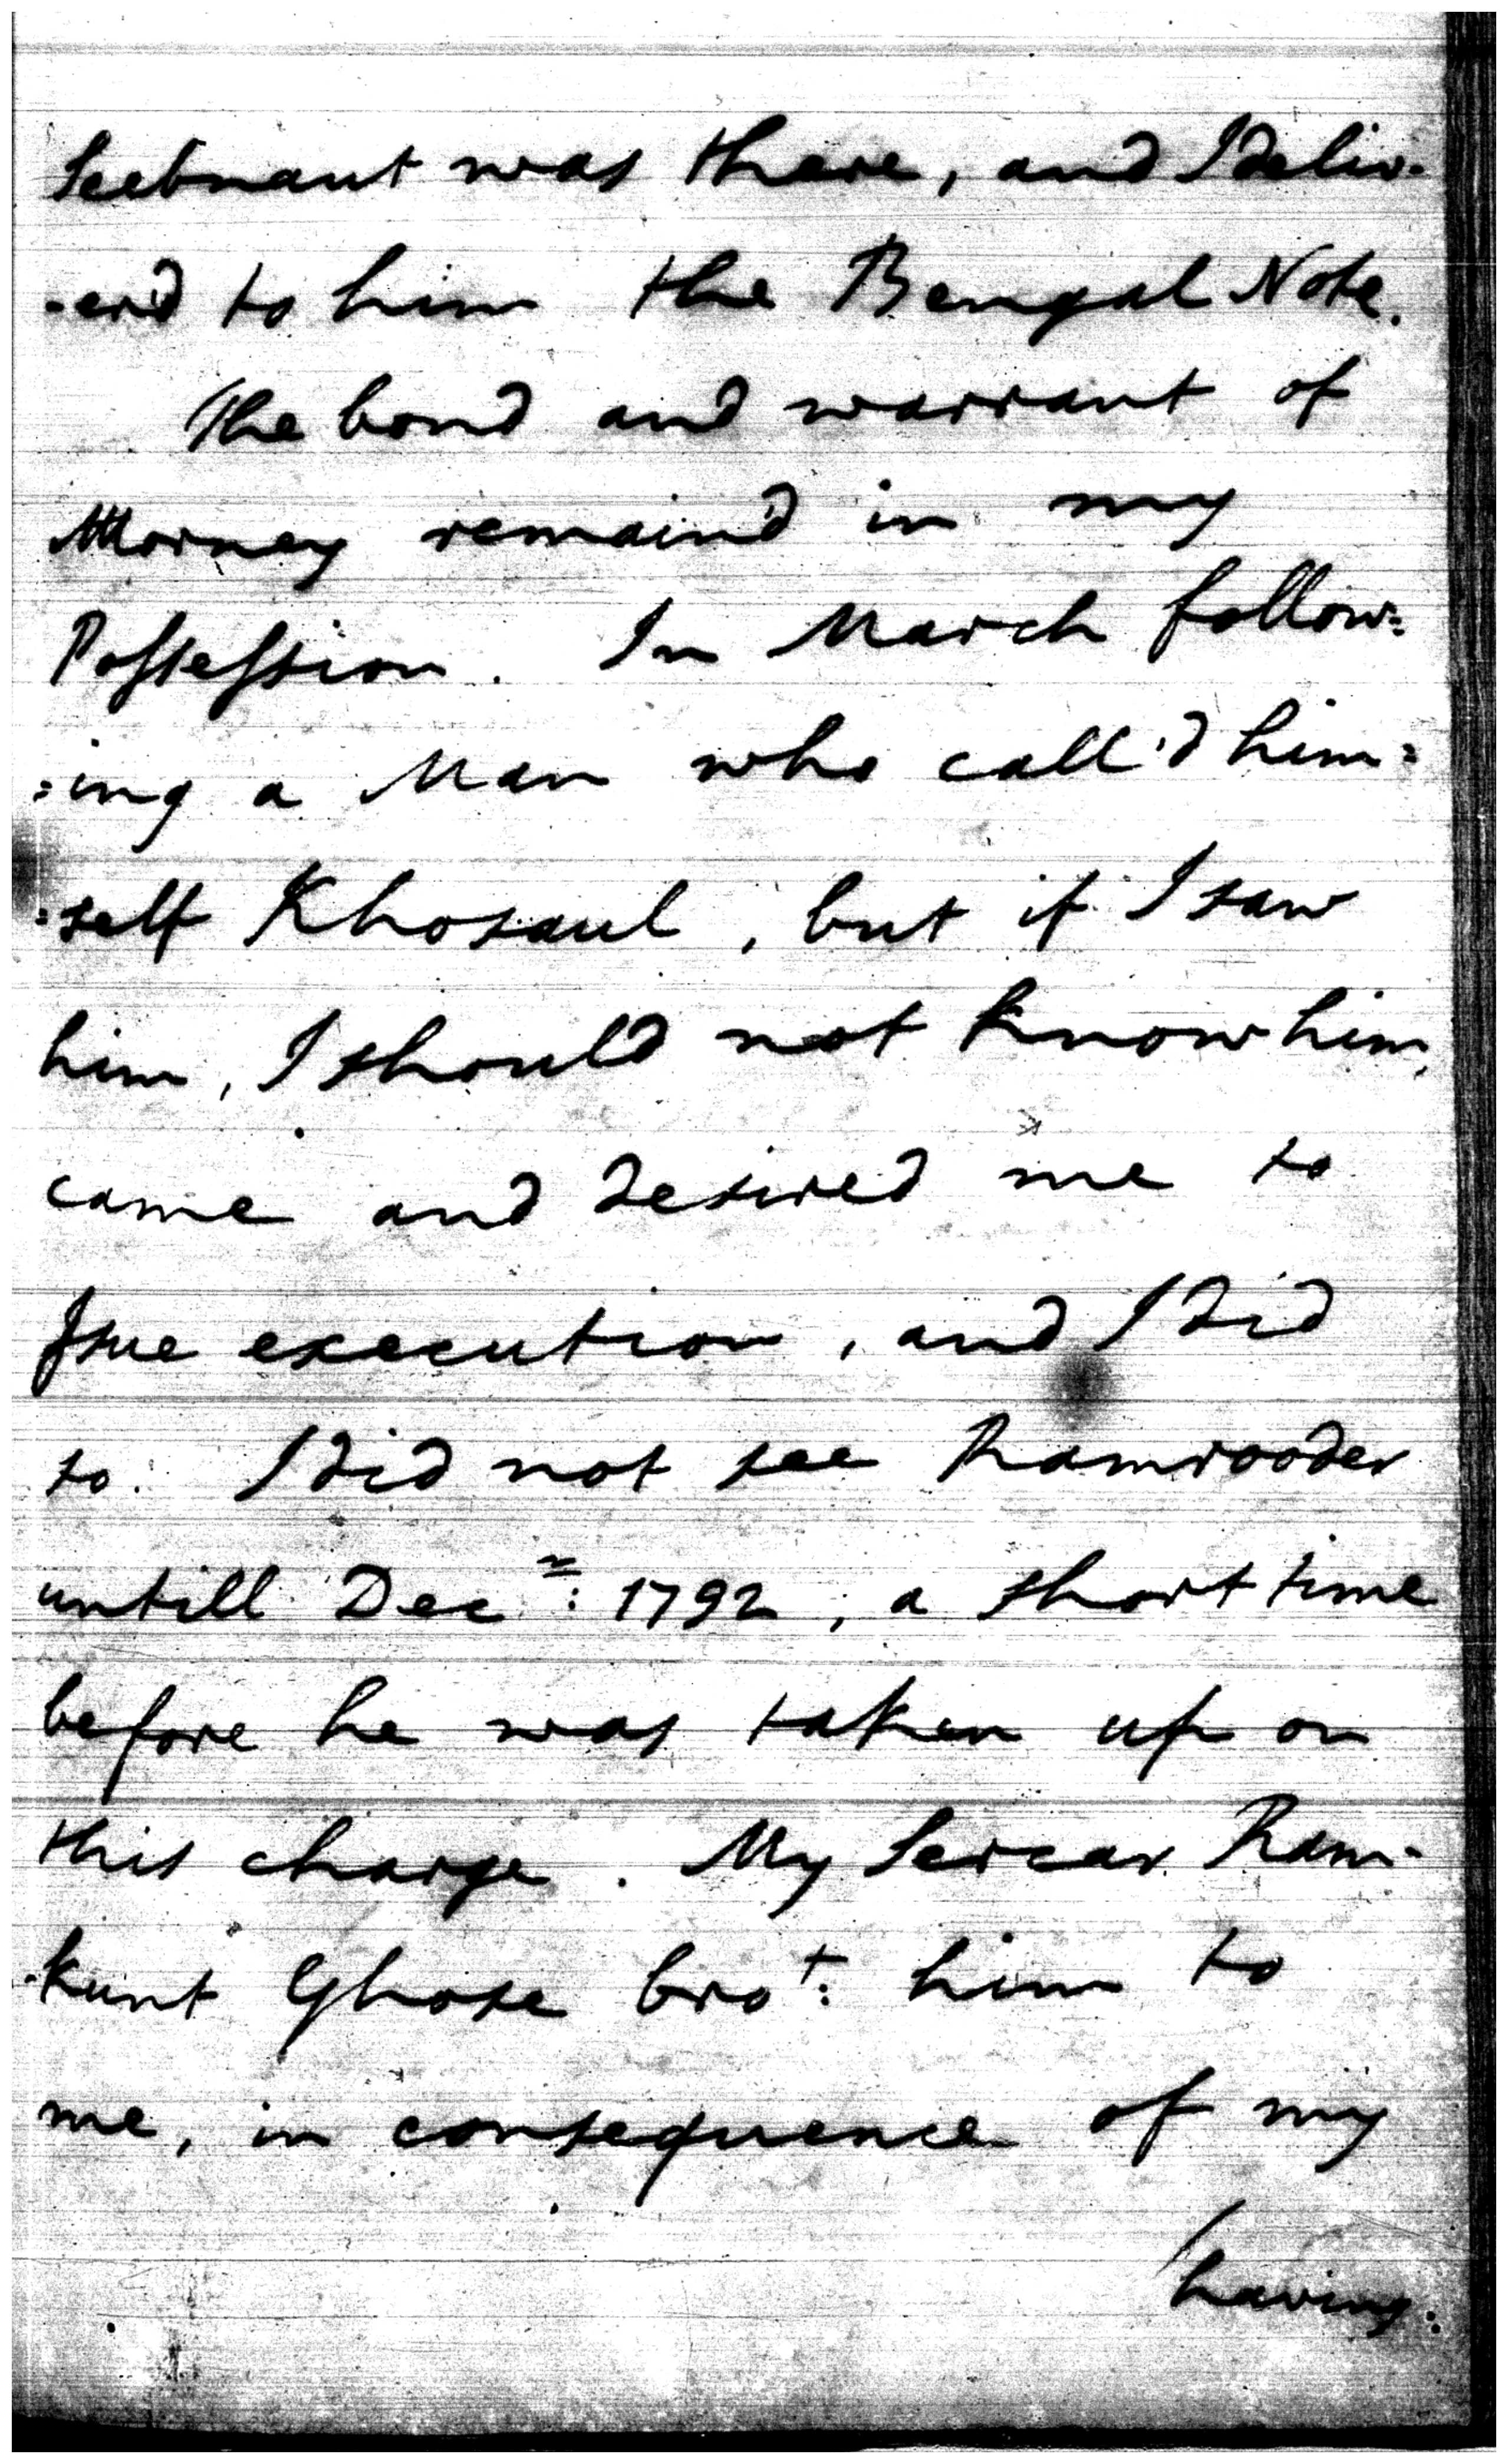 Seebnaut was there, and I deliv-
-er'd to him the Bengal Note.
The bond and warrant of
Attorney remain'd in my
Possession. In March follow=
=ing a Man who call'd him=
=self Khosaul, but if I saw
him, I should not know him,
came and desired me to
Issue execution, and I did
so. I did not see Ramrooder
untill Dec.r: 1792, a short time
before he was taken up on
this charge. My Sercar Ram-
-kunt Ghose bro.t: him to
me, in consequence of my
having: